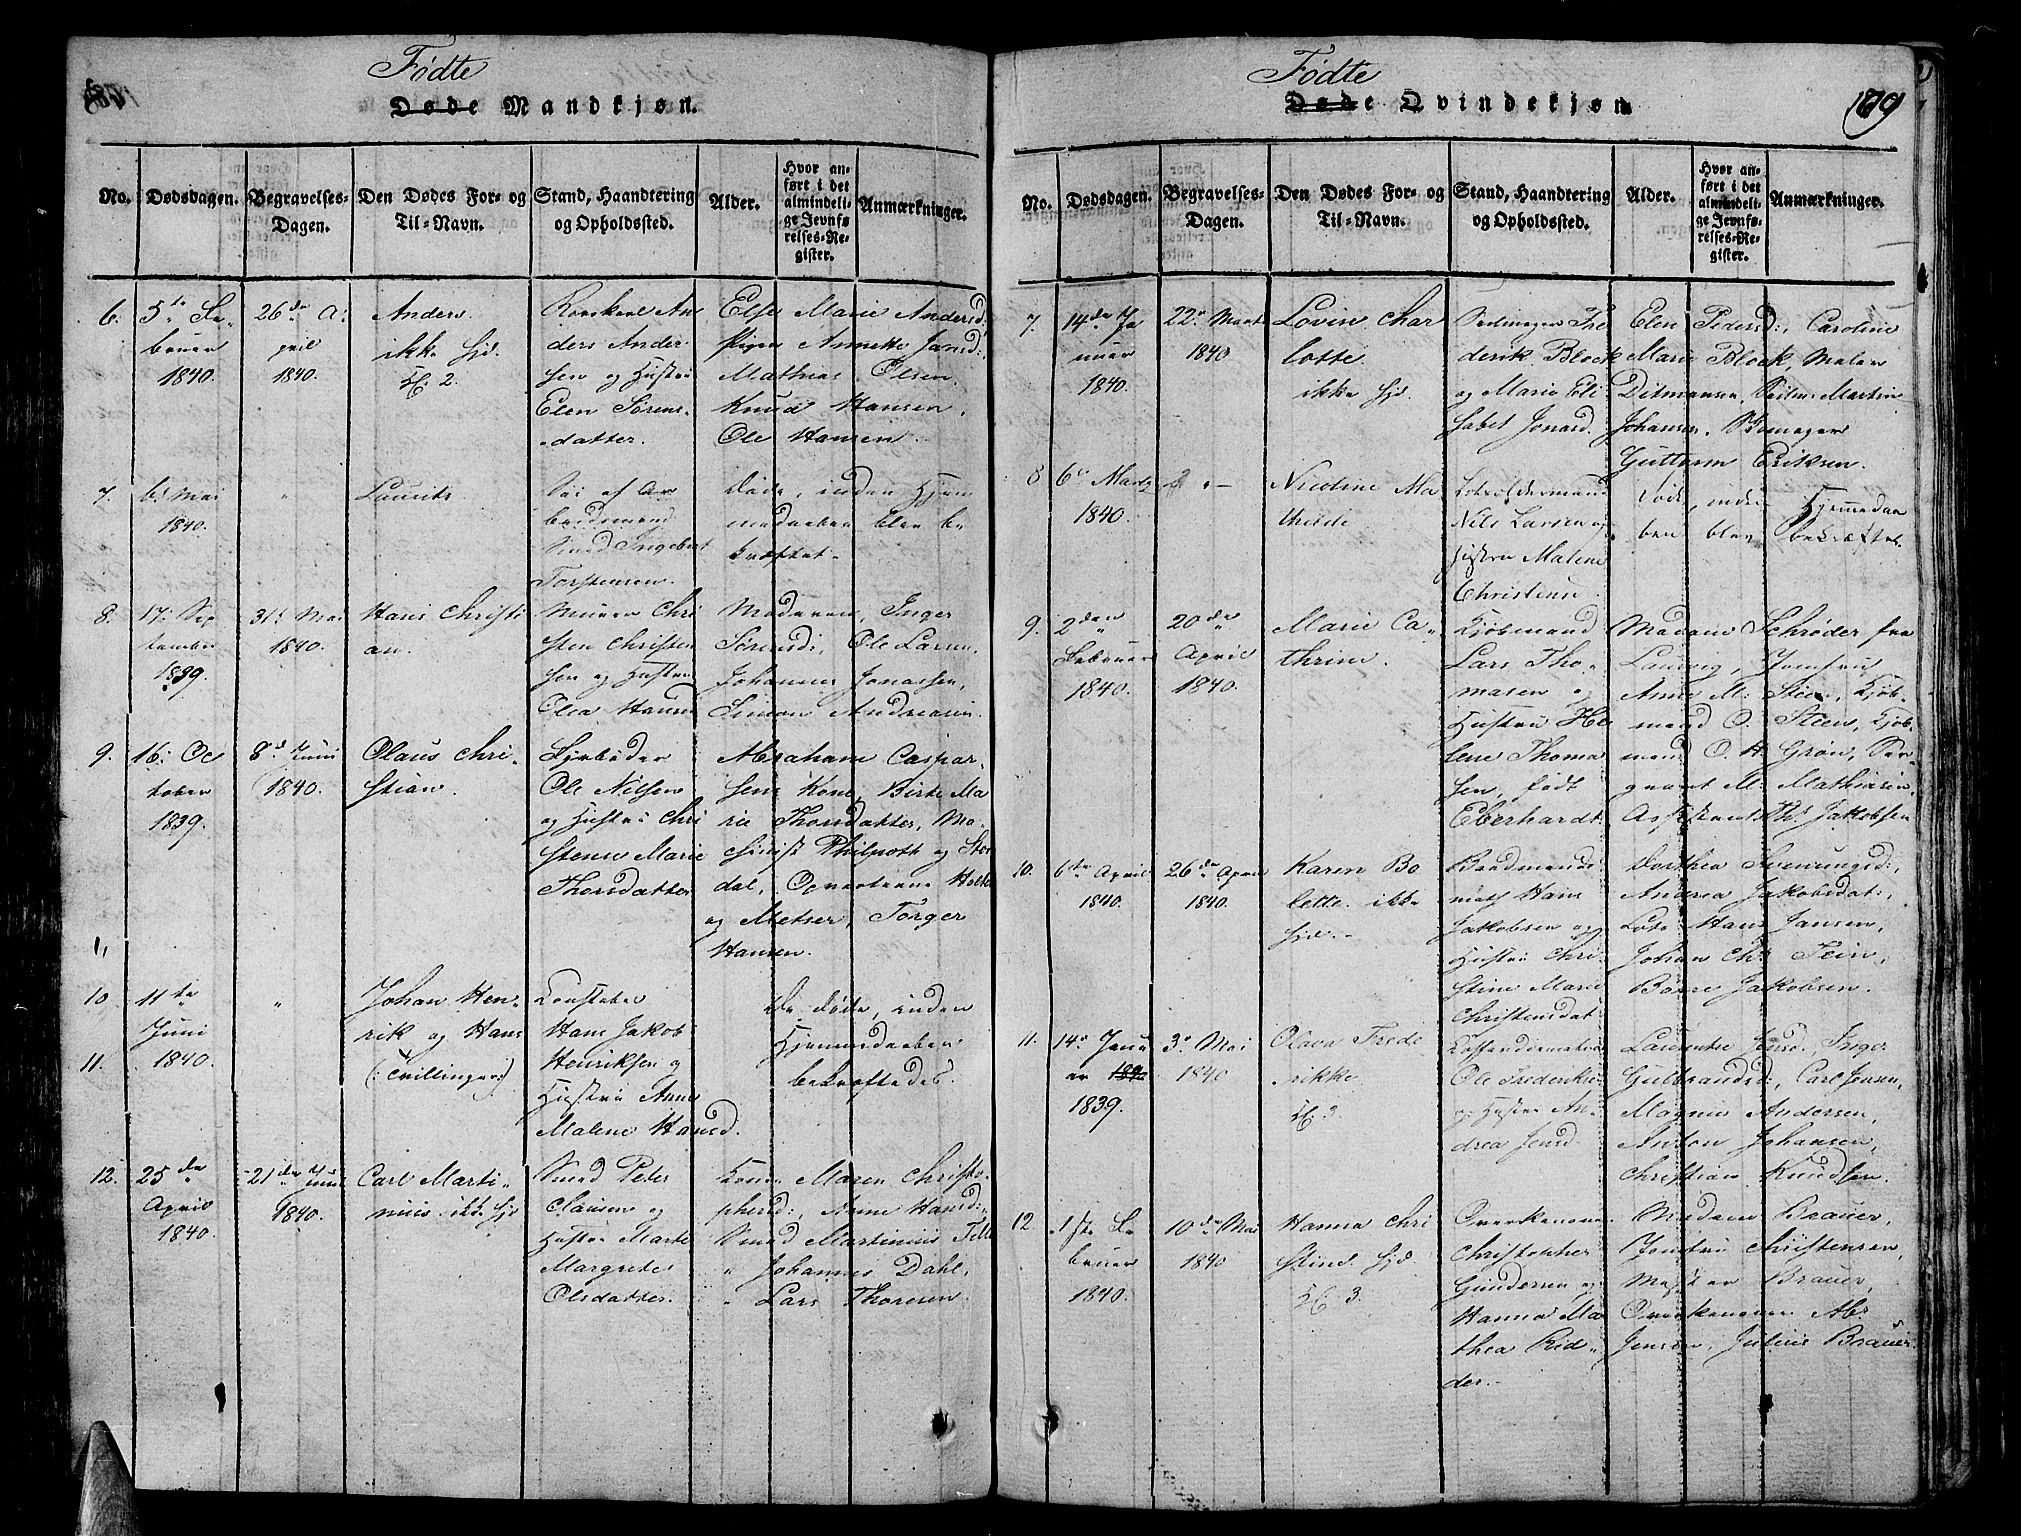 Fødte
Døde Mandkjøn.
No.
Dødsdagen.
Begravelses-
Dagen.
Den Dødes For- og
Til-Navn.
Stand, Haandtering
og Opholdssted.
Alder.
Hvor an-
ført i det
almindeli-
ge Jevnfø-
relses-Re-
gister.
Anmærkninger.
6.
5te Fe-
bruar
1840.
26de A-
pril
1840.
Anders
ikke hjd.
Kl: 2.
Anders Ander
sen og Hustru
Elen Sørens-
datter.
Else Marie Andersd:
Pigen Annette Jansd:
Mathias Olsen
Knud Hansen,
Ole Hansen
7.
6: Mai
1840.
"
Laurits
Søn af Ar
beidsmand
Svend Ingebert
Torstensen.
Døde, inden Hjem
medaaben blev be
kræftet.
8.
17: Sep
tember
1839.
31: Mai
1840.
Hans Christi
an.
Murer Chri
sten Christen
sen og Hustru
Olea Hansd
Madamen, Inger
Sørensd:, Ole Larsen,
Johannes Jonassen,
Simon Andreasen.
9.
16: Oc
tober
1839.
8de Juni
1840.
Olaus Chri-
stian.
Fyrbøder
Ole Nilsen
og Hustru Chri
stense Marie
Thorsdatter
Abraham Caspar-
sens Kone, Birte Ma
rie Thorsdatter, Ma-
chinist Philpott og Stor
dal, Opvarterne Holte
og Metser, Torger
Hansen.
10.
11.
11te
Juni
1840.
"
Johan Hen-
rik og Hans
(: Tvillinger:)
Constabel
Hans Jakob
Henriksen og
Hustru Anne
Malene Hansd.
De døde, inden
Hjemmedaaben
bekræftedes.
12.
25de
April
1840.
21de Juni
1840.
Carl Marti-
nius. ikke hjd
Smed Peter
Clausen og
Hustru Marte
Margrete
Olsdatter.
Kone Maren Christo-
phersd:, Anne Hansd:,
Smed Martinius Tell
" Johannes Dahl,
" Lars Thoresen.
Fødte
Døde Qvindekjøn
179
No.
Dødsdagen.
Begravelses-
Dagen.
Den Dødes For- og
Til-Navn.
Stand, Haandtering
og Opholdssted.
Alder.
Hvor an-
ført i det
almindeli-
ge Jevnfø-
relses-Re-
gister.
Anmærkninger.
7.
14de Ja
nuar
1840.
22: Marts
1840.
Lovin Char
lotte
ikke hjd.
Seilmager Fre
derik Block
og Marie Eli
sabet Jonasd.
Elen Pedersd:, Caroline
Marie Block, Maler
Ditmansen, Seilm: Martin
Johansen,
Guttorm Eriksen.
8
6: Marts
1840.
Nicoline Ma
thilde
Lodsoldermand
Nils Larsen og
Hustru Malene
Christense.
Døde, inden Hjemmedaa
ben blev bekræftet.
9.
2den
Februar
1840.
20de
April
1840.
Marie Ca-
thrine.
Kjøbmand
Lars Tho-
masen og
Hustru He
lene Thoma
sen, født
Eberhardt
Madame Schrøder fra
Laurvig, Jomfru
Anne M: Steen, Kjøb-
mand O. Steen, Kjøb
mand O. H. Grøn, Ser-
geant M. Mathiesen,
Assistent Th. Jakobsen
10.
6te April
1840.
26de April
1840.
Karen Bo
lette. ikke
hjd.
Baadmands
math Hans
Jakobsen og
Hustru Chri-
stine Marie
Christensdat
Dorthea Svenungsd:
Andrea Jakobsdat:,
Lods Hans Jansen,
Johan Chr Fein,
Børre Jakobsen.
11.
14: Janu
ar 189
1839.
3: Mai
1840
Olava Frede
rikke
Kl 3.
Ole Frederiksen
og Hustru An-
drea Jensd.
Laurentze Jensd., Inger
Gulbrandsd:, Carl Jensen,
Magnus Andersen,
Anton Johansen,
Christian Knudsen.
12
1ste Fe
bruar
1840.
10de Mai
1840
Hanna Chri
stine. hjd.
Kl 3.
Overkanoner
Christopher
Gundersen og
Hanna Ma
thea Rid-
der.
Madam Brauer,
Jomfru Christensen,
Brauer,
Overkanoner Abr
Jensen, Julius Brauer.